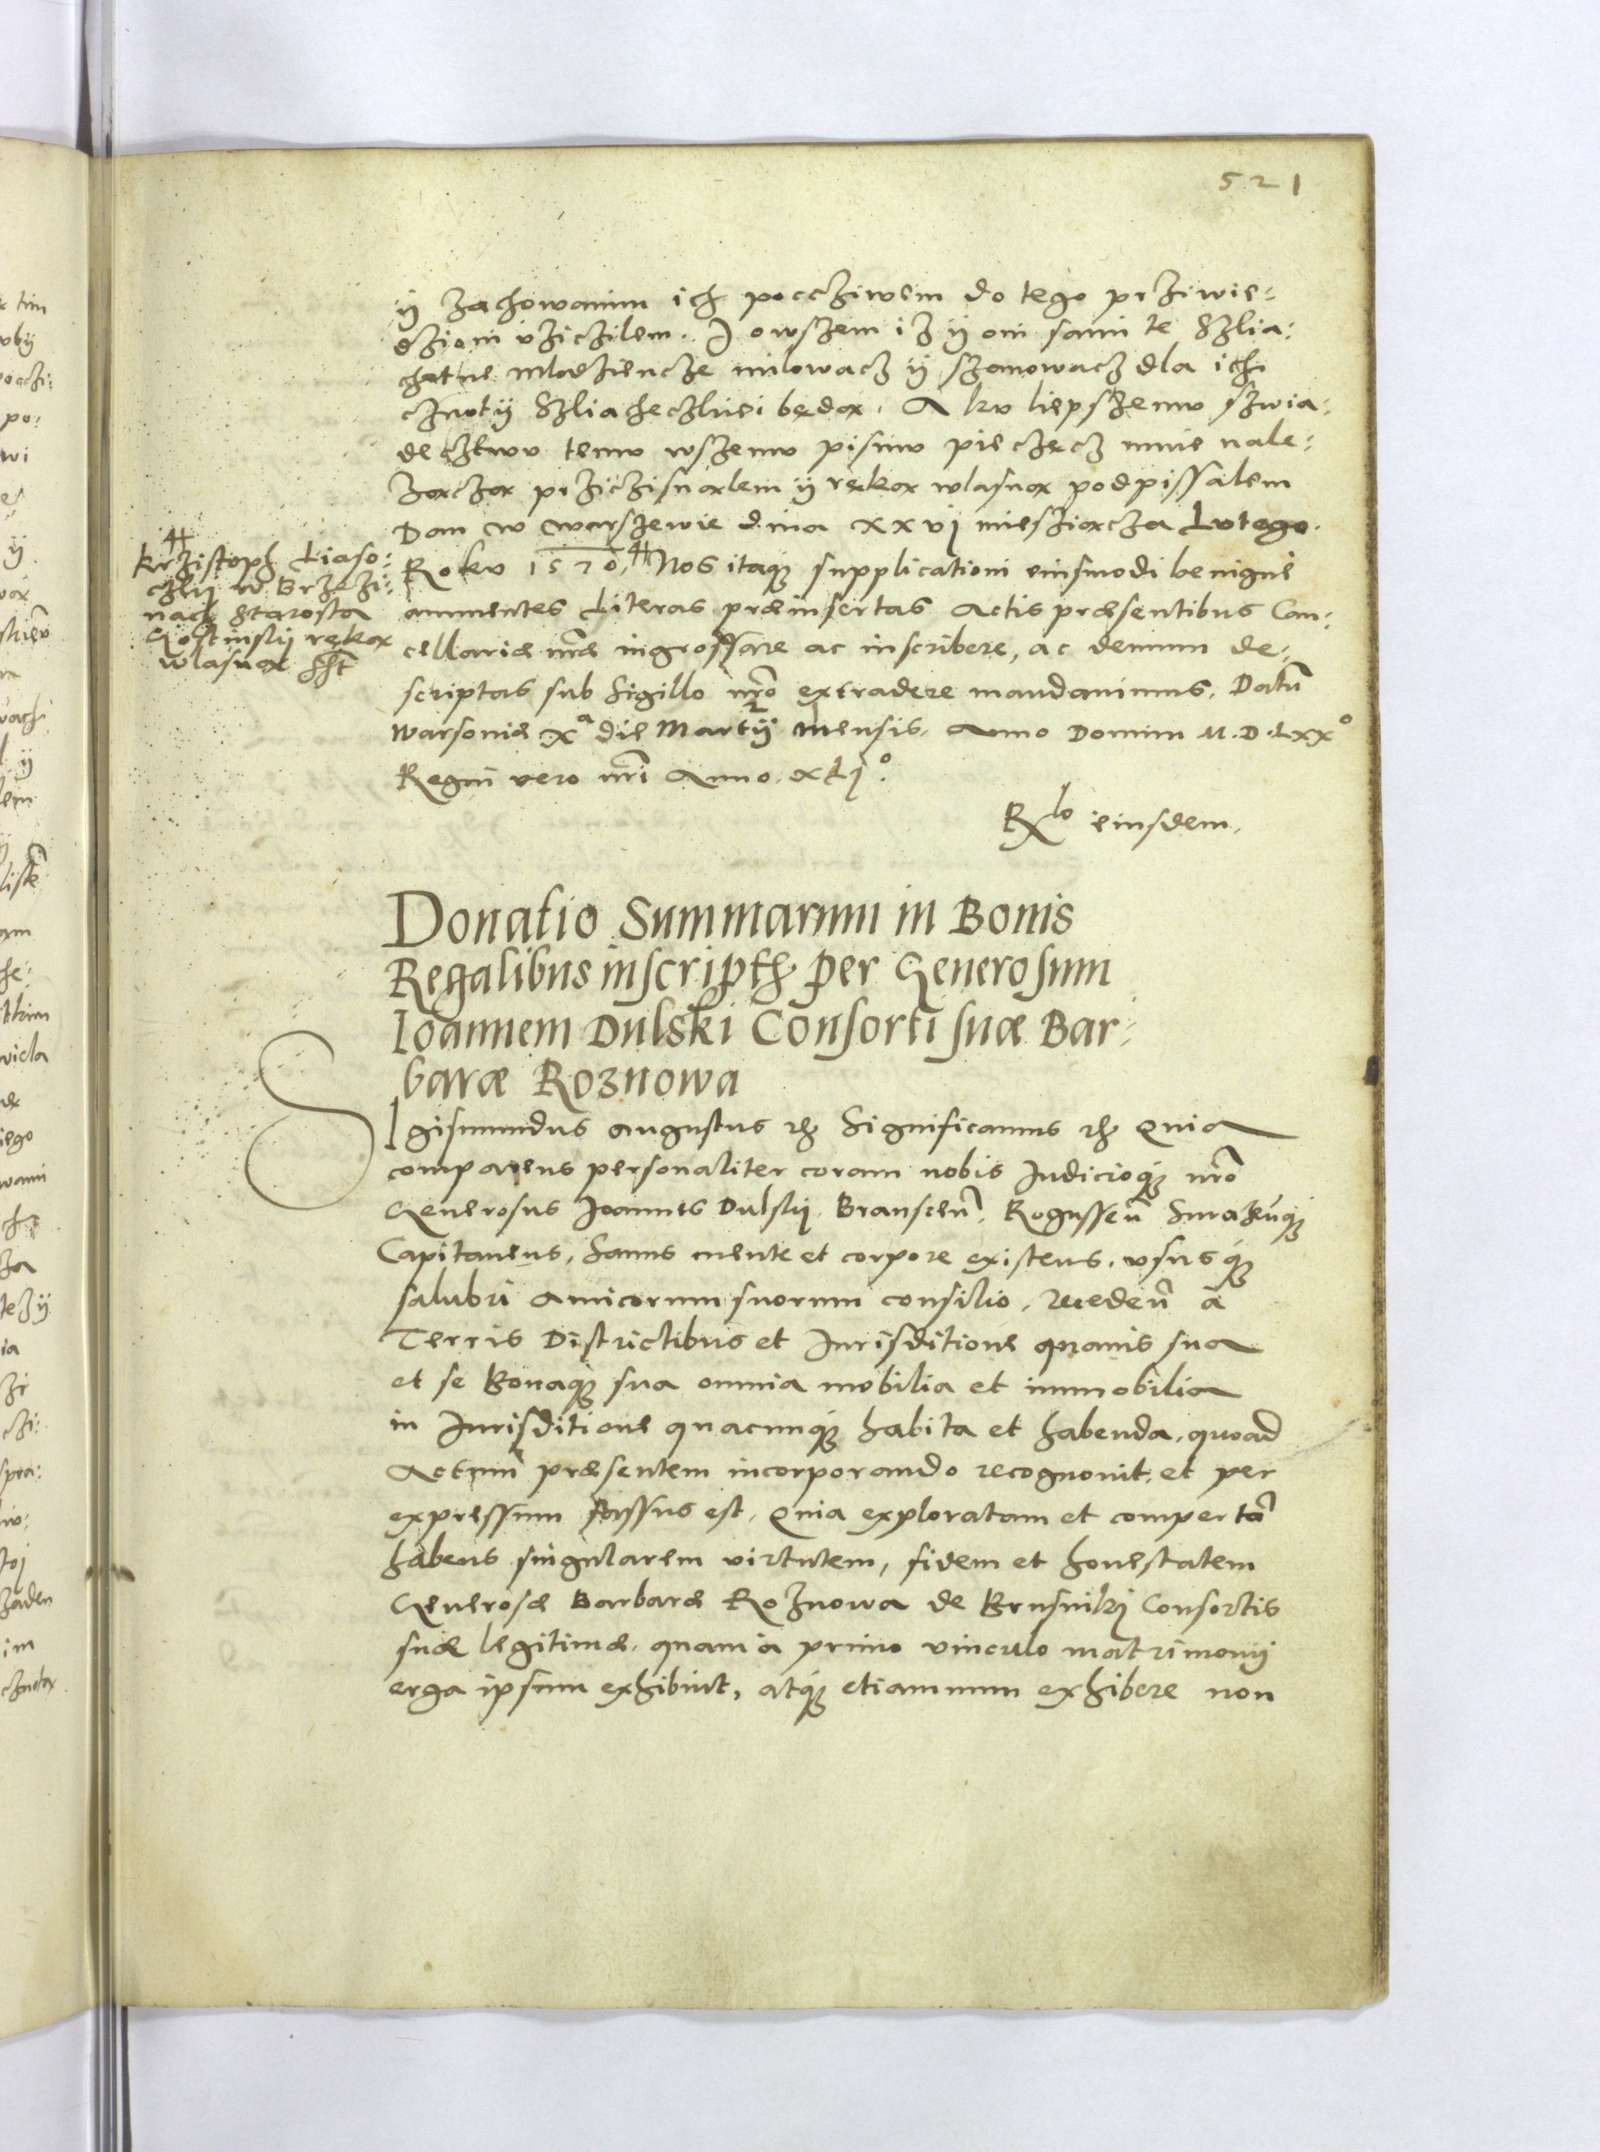 521
ÿ zachowanim ich poccziwem do tego prziwie-
dzioni użicżilem. I owszem iż ÿ oni sami te Szlia-
chetne Młodziencze milowacz ÿ szanowacz dla ich
cznotÿ Szliacheczkiei będą. A ku liepszemu szwia-
decztwu temu wszemu pismu pieczęcz mnie nale-
żączą prziczisnąłem ÿ ręką własną podpissałem
Dan w Warszewie dnia XXVj miesziącza Lutego.
Roku 1570 ⌗ Nos itaq; supplicationi eiusmodi benigne
annuentes Literas præinsertas Actis præsentibus Can-
cellariæ nr̃æ ingrossare ac inscribere, ac demum de-
scriptas sub Sigillo nr̃o extradere mandauimus. Datũ
Warsouiæ Xᵃ die Martÿ mensis. Anno Domini M.D.LXX°
Regni vero nr̃i Anno. XLj°.
⌗
Krzistoph Liaso-
czkÿ w Brzezi-
nach Starosta
Gostinskÿ ręką
własną sst
Rlo eiusdem.
Donatio Summarum in Bonis
Regalibus inscript per Generosum
Ioannem Dulski Consorti suæ Bar-
baræ Roznowa
SIgismundus augustus etc Significamus etc Quia
comparens personaliter coram nobis Iudicioq; nr̃o
Generosus Joannes Dulskÿ Branscen̄. Rogussen̄ Surazen̄q;
Capitaneus, Sanus mente et corpore existens, vsusq;
salubri Amicorum suorum consilio, Receden̄ à
Terris Districtibus et Iurisditione quauis sua
et se bonaq; sua omnia mobilia et immobilia
in Iurisditione quacunq; habita et habenda, quoad
Actum præsentem incorporando recognouit, et per
expressum fassus est, Quia exploratam et compertã
habens singularem virtutem, fidem et honestatem
Generosæ Barbaræ Roznowa de Brusniki Consortis
suæ legitimæ, quam à primo vinculo matrimonÿ
erga ipsum exhibuit, atq; etiamnum exhibere non